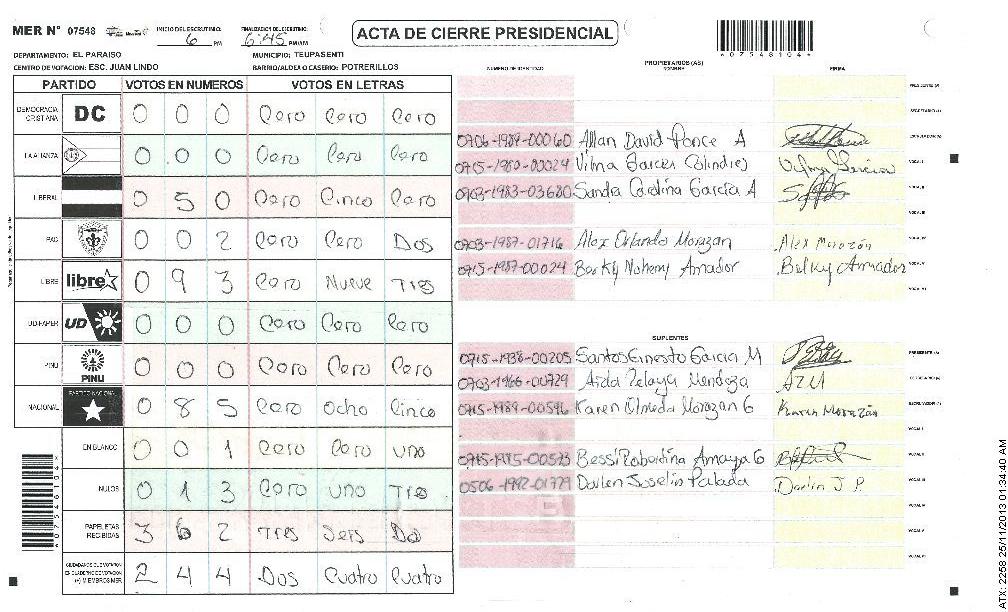 MER N° 07548 INICIO DEL ESCRUTINIO: 6 PM FINALIZACION DEL ESCRUTINIO: 6:45 PM/AM
ACTA DE CIERRE PRESIDENCIAL
*07548104*
DEPARTAMENTO: EL PARAISO MUNICIPIO: TEUPASENTI
CENTRO DE VOTACION: ESC. JUAN LINDO BARRIO/ALDEA O CASERIO: POTRERILLOS
PARTIDO VOTOS EN NUMEROS VOTOS EN LETRAS
DEMOCRACIA CRISTIANA DC 0 0 0 Cero Cero Cero
LA ALIANZA 0 0 0 Cero Cero Cero
LIBERAL 0 5 0 Cero Cinco Cero
PAC 0 0 2 Cero Cero Dos
LIBRE libre 0 9 3 Cero Nueve Tres
UD-FAPER UD 0 0 0 Cero Cero Cero
PINU PINU 0 0 0 Cero Cero Cero
NACIONAL PARTIDO NACIONAL 0 8 5 Cero Ocho Cinco
EN BLANCO 0 0 1 Cero Cero uno
NULOS 0 1 3 Cero uno Tres
PAPELETAS RECIBIDAS 3 6 2 Tres Seis Dos
CIUDADANOS QUE VOTARON EN CUADERNO DE VOTACION (+) MIEMBROS MER 2 4 4 Dos Cuatro Cuatro
NUMERO DE IDENTIDAD PROPIETARIOS (AS) NOMBRE FIRMA
PRESIDENTE (A)
SECRETARIO (A)
0706-1989-00060 Allan David Ponce A ESCRUTADOR (A)
0715-1980-00024 Vilma Garcia Colindres Vilma Garcia VOCAL I
0703-1983-03680 Sandra Carolina Garcia A VOCAL II
VOCAL III
0703-1987-01716 Alex Orlando Morazan Alex Morazón VOCAL IV
0715-1987-00024 Belky Nohemy Amador Belky Amador VOCAL V
VOCAL VI
SUPLENTES
0715-1938-00205 Santos Ernesto Garcia M PRESIDENTE (A)
0703-1966-00729 Aida Zelaya Mendoza AZM SECRETARIO (A)
0715-1989-00596 Karen Olmeda Morazan G Karen Morazán ESCRUTADOR (A)
VOCAL I
0715-1985-00523 Bessi Robertina Amaya G VOCAL II
0506-1982-01779 Darlen Joselin Palada Darlin J P. VOCAL III
VOCAL IV
VOCAL V
VOCAL VI
ATX: 2258 25/11/2013 01:34:40 AM